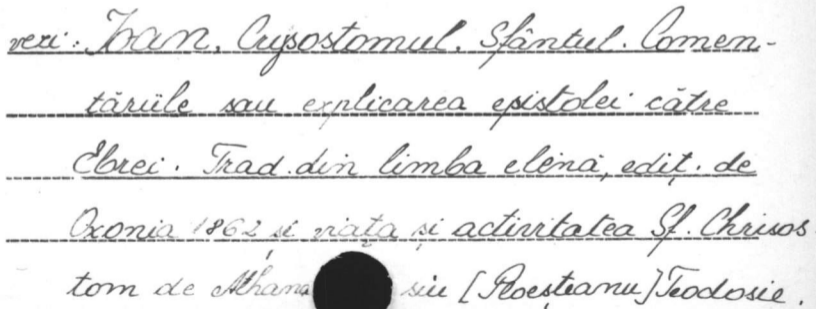 vezi: Ioan, Crysostomul, Sfântul. Comen-
tăriile sau explicarea epistolei către
Ebrei. Trad. din limba elină, ediț. de
Oxonia 1862 și viața și activitatea Sf. Chrisos-
tom de Athana siu [Ploeșteanu] Teodosie.